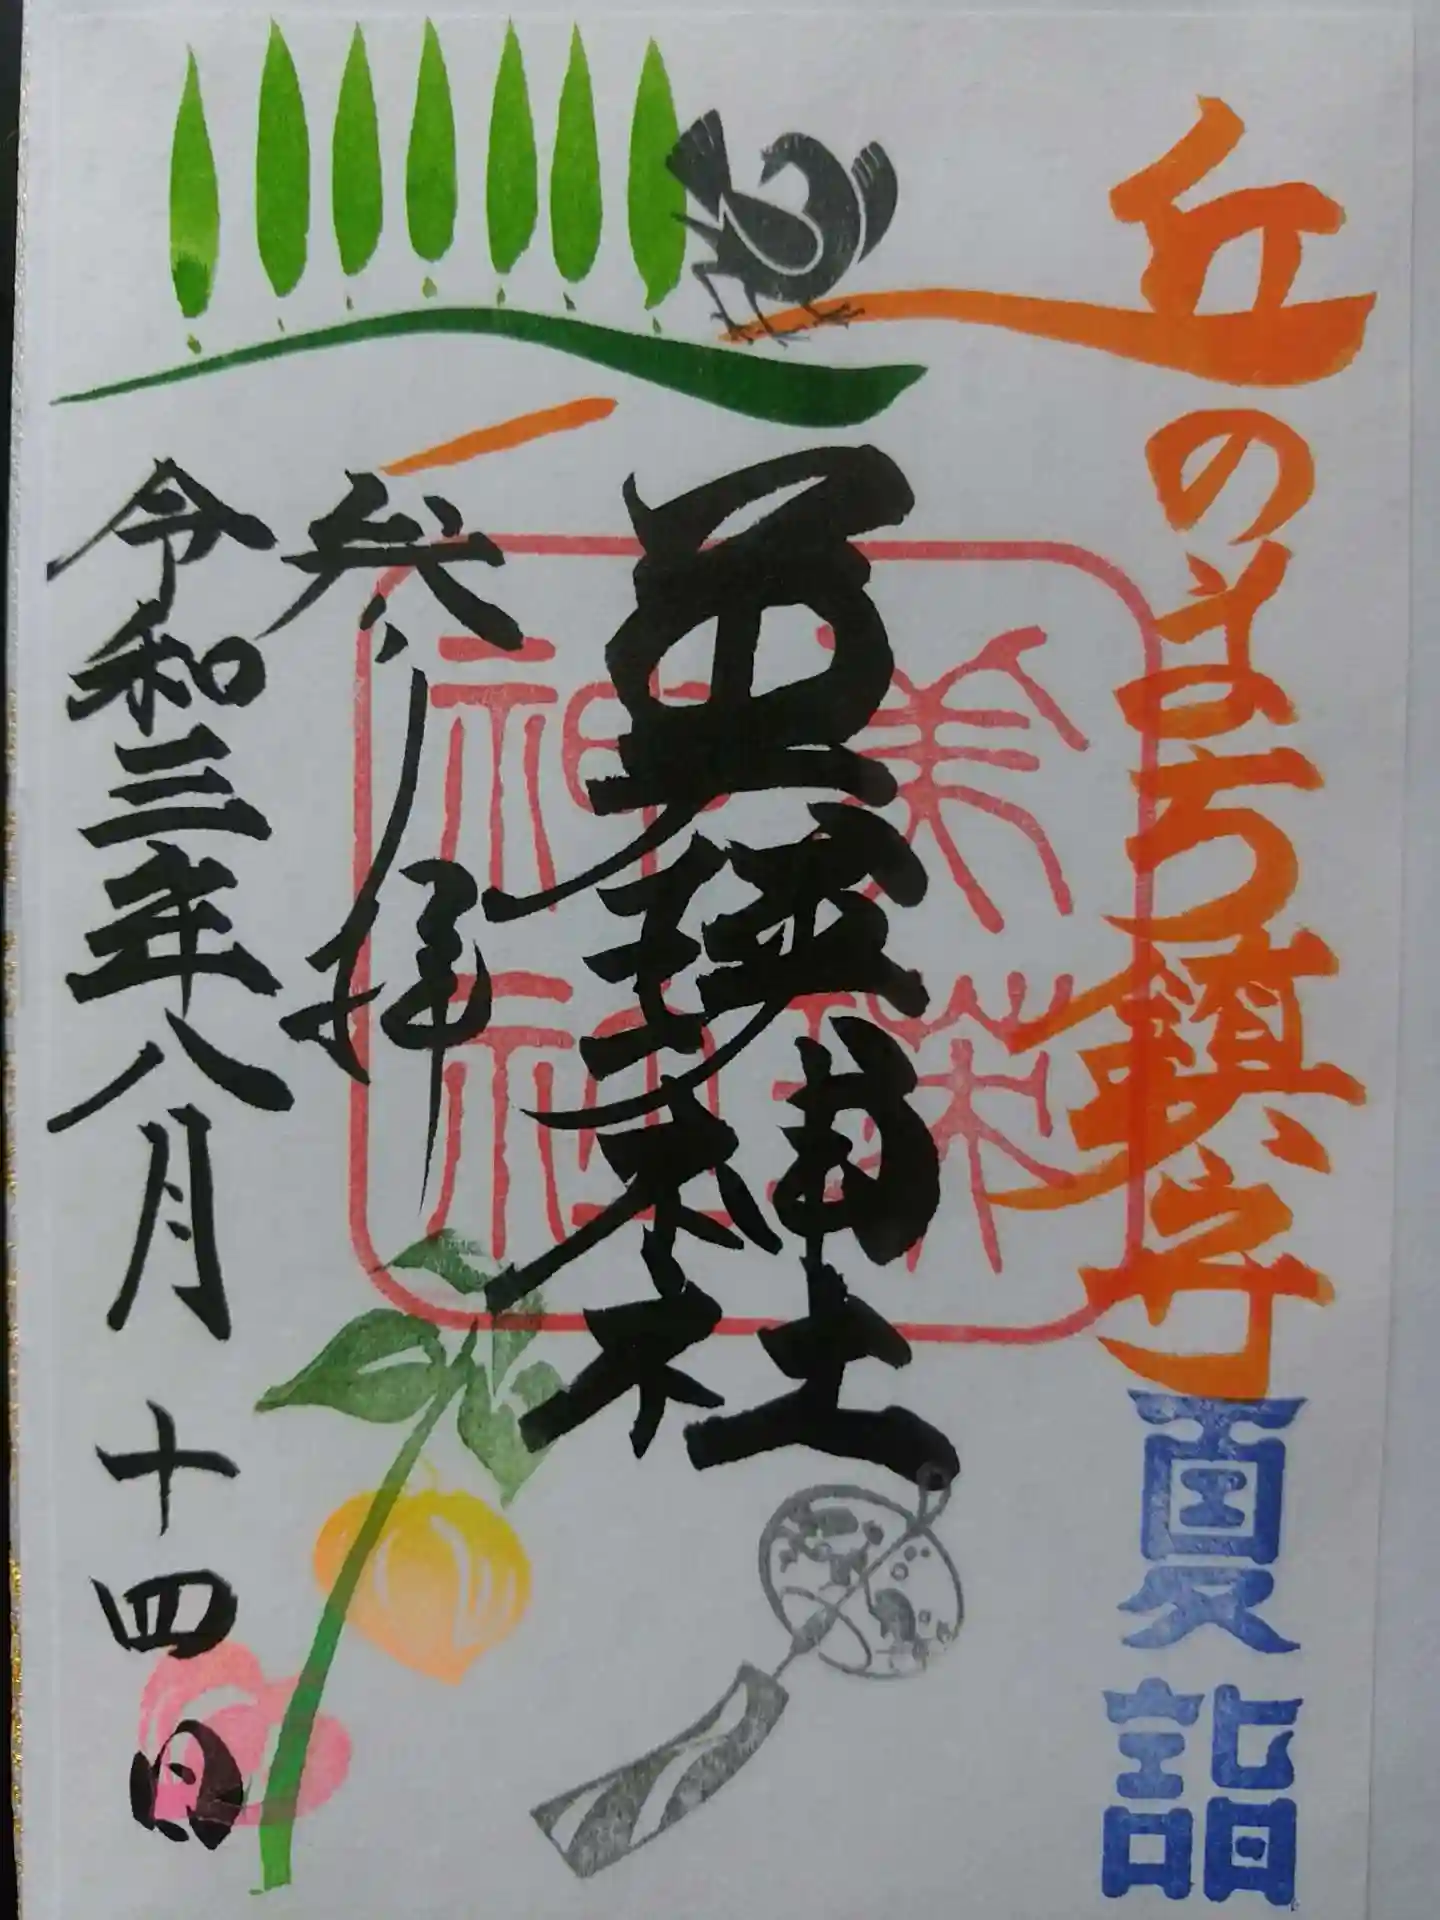 丘のまち鎮守
夏詣
美瑛神社
美瑛
神社
参拝
令和三年八月十四日